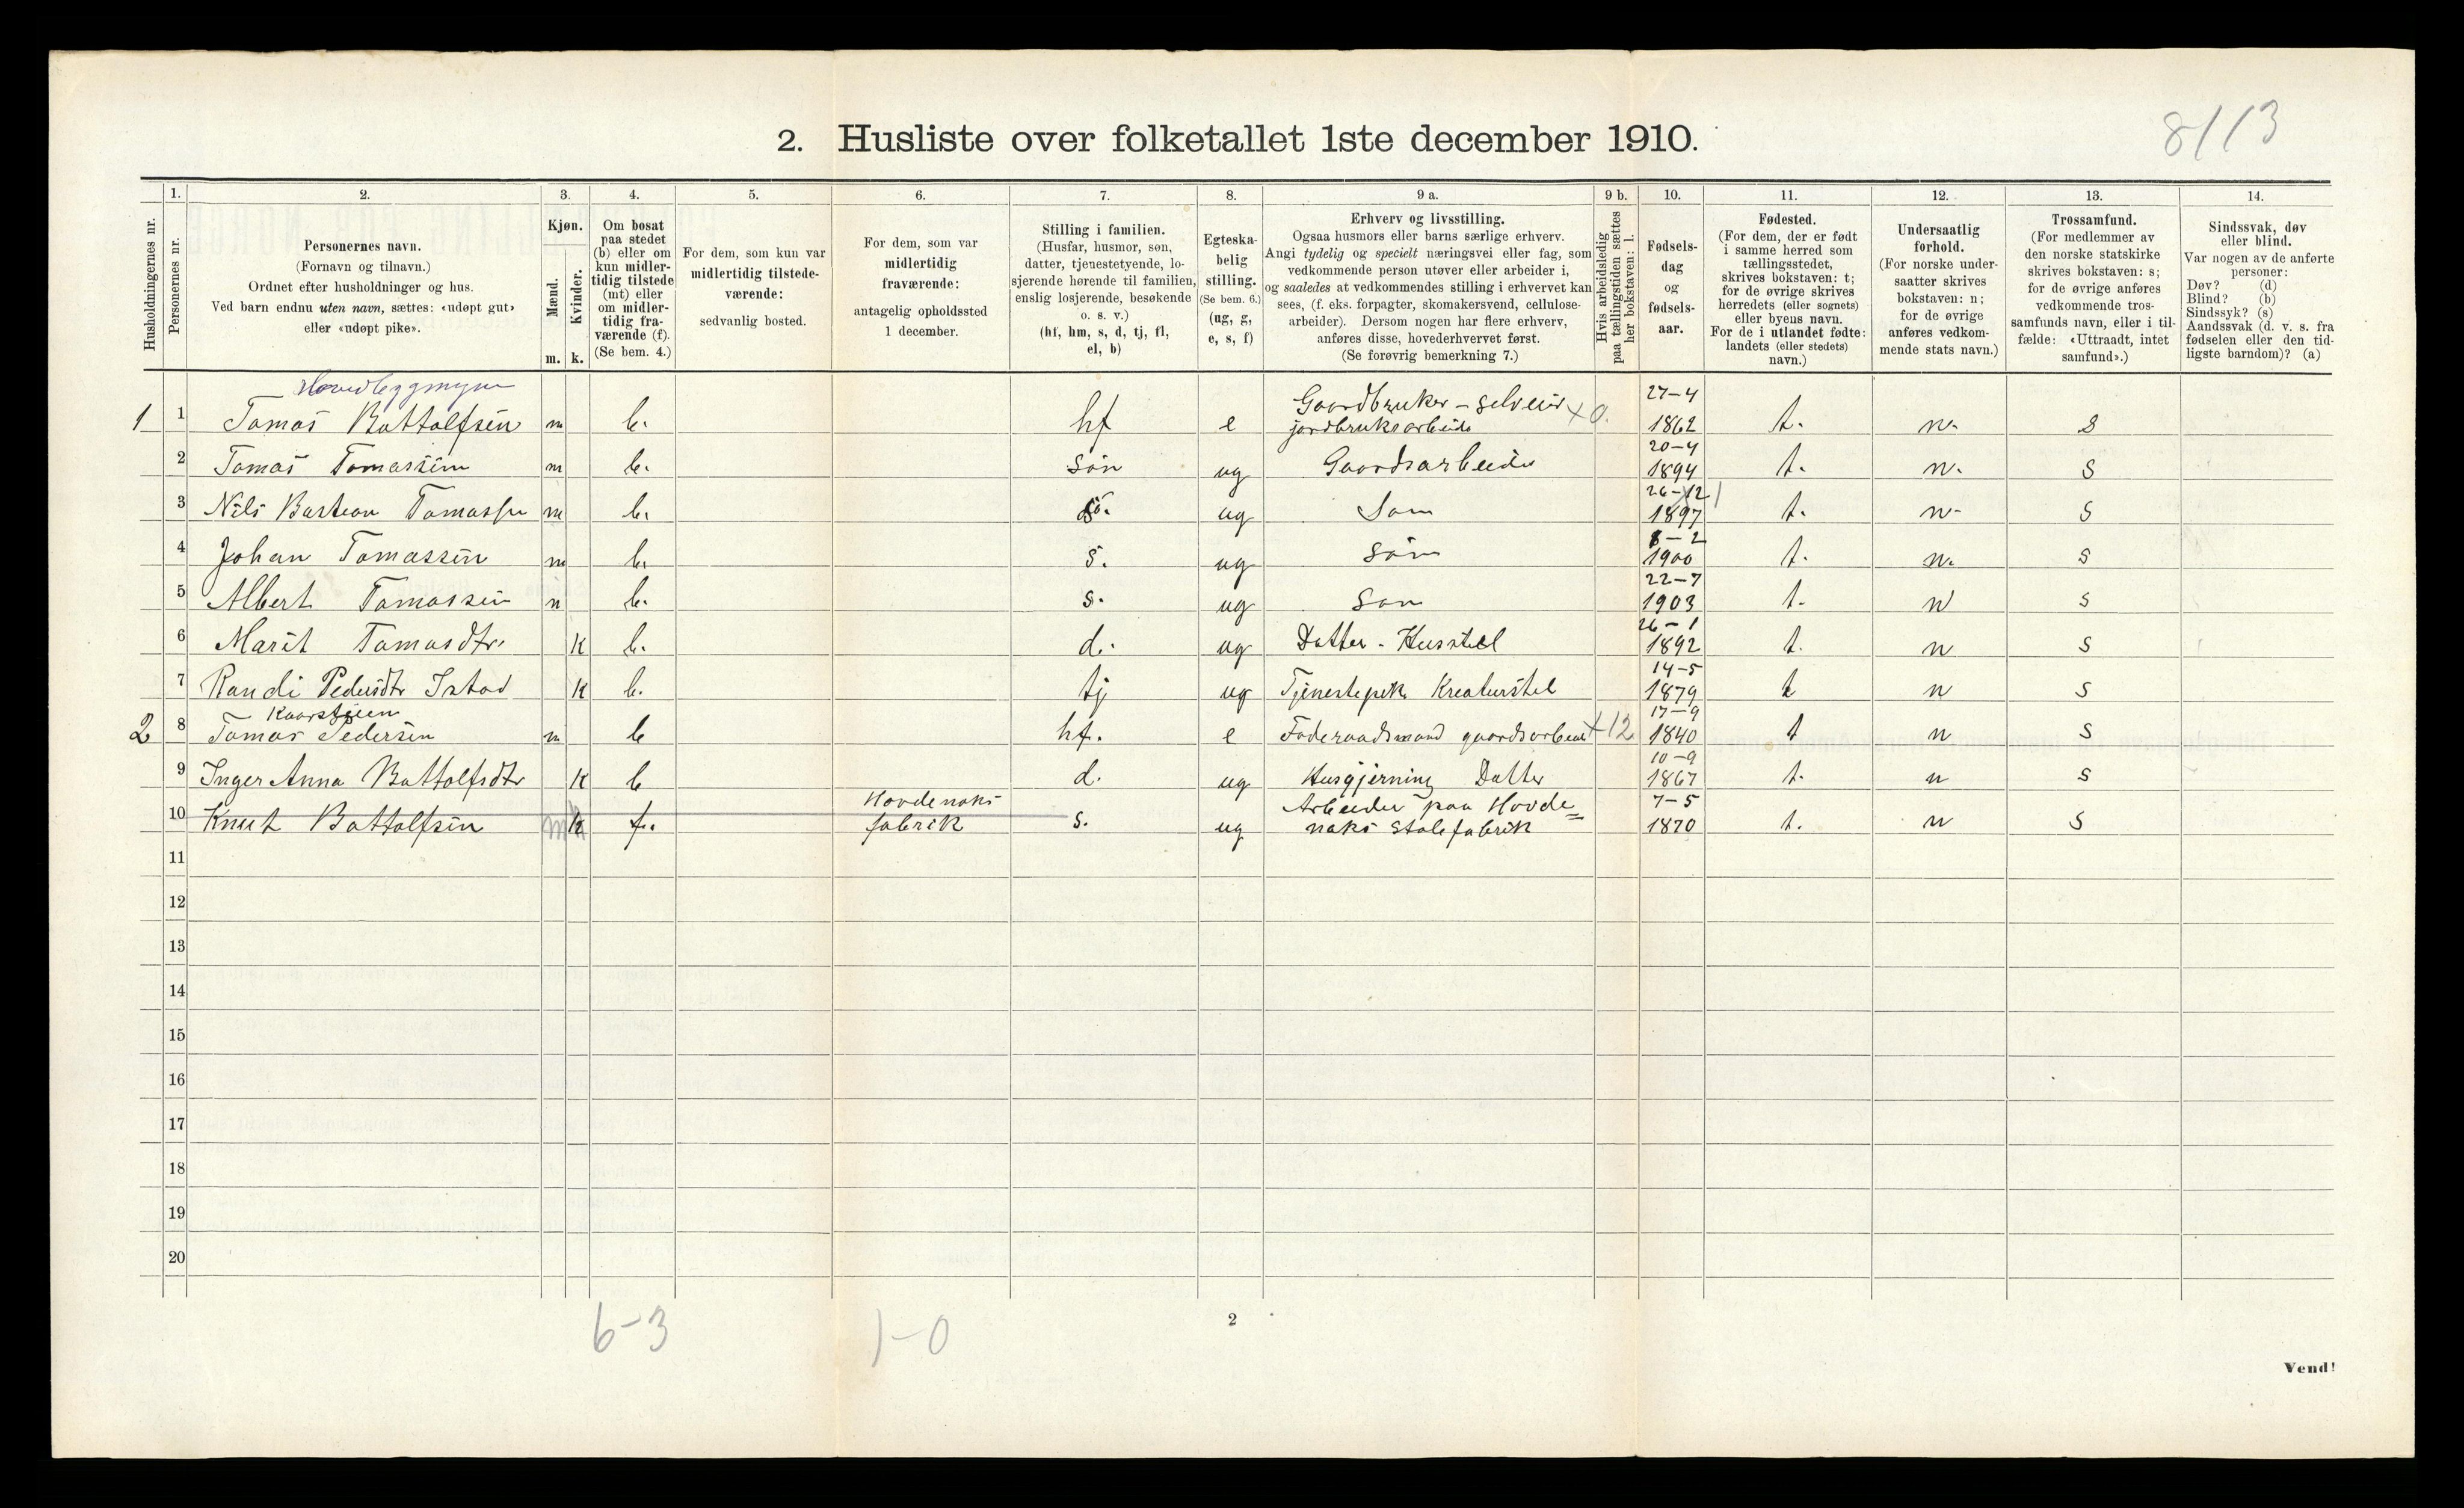 8/13
2. Husliste over folketallet 1ste december 1910.
1. 2. 3. 4. 5. 6. 7. 8. 9 a. 9 b. 10. 11. 12. 13. 14.
Husholdningernes nr.
Personernes nr.
Personernes navn.
(Fornavn og tilnavn.)
Ordnet efter husholdninger og hus.
Ved barn endnu uten navn, sættes: «udøpt gut»
eller «udøpt pike».
Kjøn.
Mænd.
Kvinder.
m. k.
Om bosat
paa stedet
(b) eller om
kun midler-
tidig tilstede
(mt) eller
om midler-
tidig fra-
værende (f).
(Se bem. 4.)
For dem, som kun var
midlertidig tilstede-
værende:
sedvanlig bosted.
For dem, som var
midlertidig
fraværende:
antagelig opholdssted
1 december.
Stilling i familien.
(Husfar, husmor, søn,
datter, tjenestetyende, lo-
sjerende hørende til familien,
enslig losjerende, besøkende
o. s. v.)
(hf, hm, s, d, tj, fl,
el, b)
Egteska-
belig
stilling.
(Se bem. 6.)
(ug, g,
e, s, f)
Erhverv og livsstilling.
Ogsaa husmors eller barns særlige erhverv.
Angi tydelig og specielt næringsvei eller fag, som
vedkommende person utøver eller arbeider i,
og saaledes at vedkommendes stilling i erhvervet kan
sees, (f. eks. forpagter, skomakersvend, cellulose-
arbeider). Dersom nogen har flere erhverv,
anføres disse, hovederhvervet først.
(Se forøvrig bemerkning 7.)
Hvis arbeidsledig
paa tællingstiden sættes
her bokstaven: l.
Fødsels-
dag
og
fødsels-
aar.
Fødested.
(For dem, der er født
i samme herred som
tællingsstedet,
skrives bokstaven: t;
for de øvrige skrives
herredets (eller sognets)
eller byens navn.
For de i utlandet fødte:
landets (eller stedets)
navn.)
Undersaatlig
forhold.
(For norske under-
saatter skrives
bokstaven: n;
for de øvrige
anføres vedkom-
mende stats navn.)
Trossamfund.
(For medlemmer av
den norske statskirke
skrives bokstaven: s;
for de øvrige anføres
vedkommende tros-
samfunds navn, eller i til-
fælde: «Uttraadt, intet
samfund».)
Sindssvak, døv
eller blind.
Var nogen av de anførte
personer:
Døv? (d)
Blind? (b)
Sindssyk? (s)
Aandssvak (d. v. s. fra
fødselen eller den tid-
ligste barndom)? (a)
1 1 Tomas Bottolfsen m b. hf e Gaardbruker - selveier jordbruksarbeide x 0. 27-4 1862 t. n. s
2 Tomas Tomassen m b. søn ug Gaardsarbeide 20-4 1894 t. n. s
3 Nils Bastian Tomassen m b. s. ug Søn 26-12 1897 t. n- s
4 Johan Tomassen m b. s. ug søn 8-2 1900 t. n. s
5 Albert Tomassen m b. s. ug Søn 22-7 1903 t. n s
6 Marit Tomasdtr k b. d. ug Datter - Husstel 26-1 1892 t. n s
7 Randi Pedersdtr Istad k b. tj ug Tjenestepike Kreaturstel 14-5 1879 t n s
2 8 Tomas Pedersen m b hf. e Føderaadsmand gaardsarbeide +12 17-9 1840 t n s
9 Inger Anna Bottolfsdtr k b d. ug Husgjerning Datter 10-9 1867 t. n s
10 Knut Bottolfsen m k f. Hovdenaks fabrik s. ug Arbeider paa Hovde= naks stolefabrik 7-5 1870 t. n s
11
12
13
14
15
16
17
18
19
20
6-3 1-0
2
Vend!